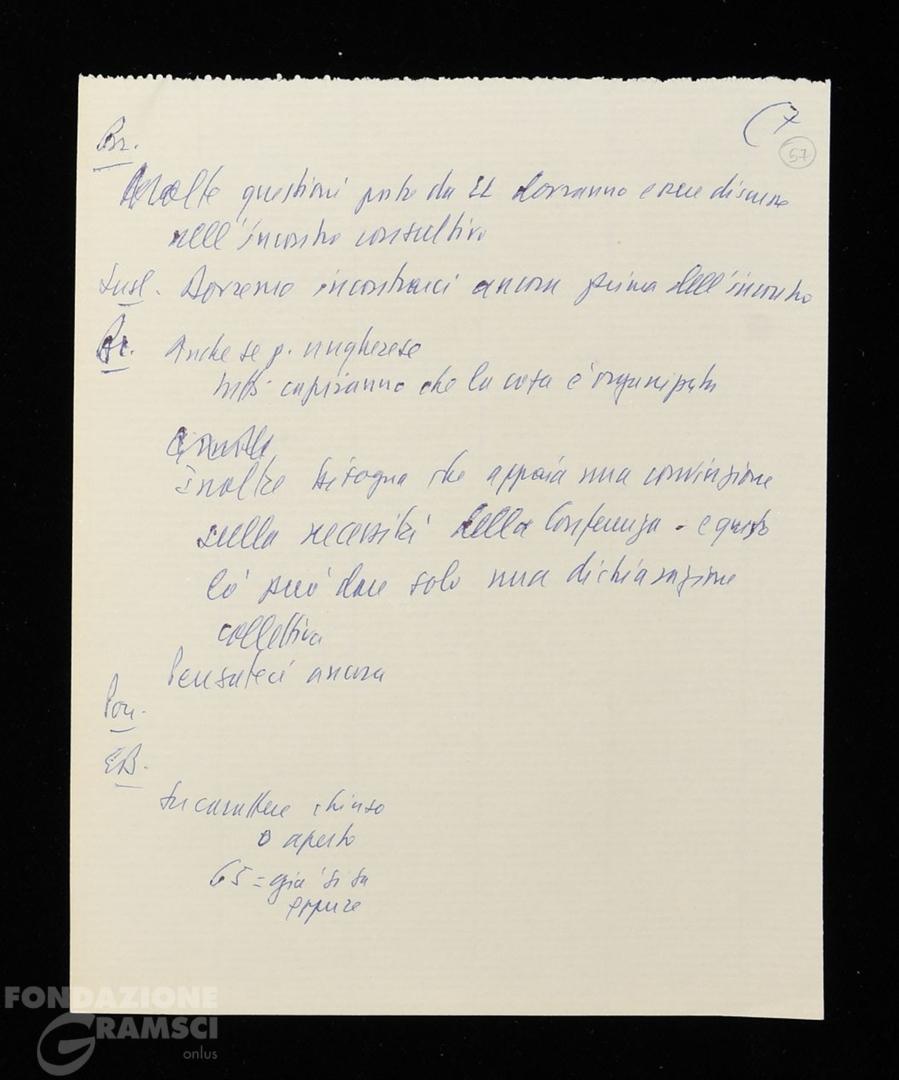 (7
57
Br.
Molte questioni poste da LL dovranno essere discusse
nell'incontro consultivo
Susl. Dovremo incontrarci ancora prima dell'incontro
Br. Anche se p. ungherese
capiranno che la cosa è organizzata
inoltre bisogna che appaia una convinzione
sulla necessità della Conferenza - e questo
lo può dare solo una dichiarazione
collettiva
Pensateci ancora
Pon.
EB.
Su carattere chiuso
o aperto
65 = già si sa
eppure
FONDAZIONE
GRAMSCI
onlus